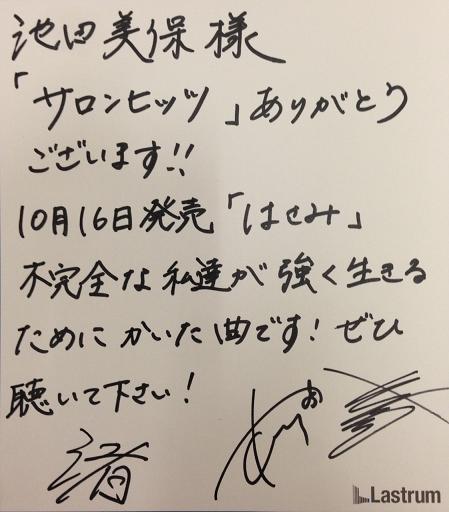 池田美保様
「サロンヒッツ」ありがとう
ございます!!
10月16日発売「はさみ」
不完全な私達が強く生きる
ためにかいた曲です！ぜひ
聴いて下さい！
渚
Lastrum